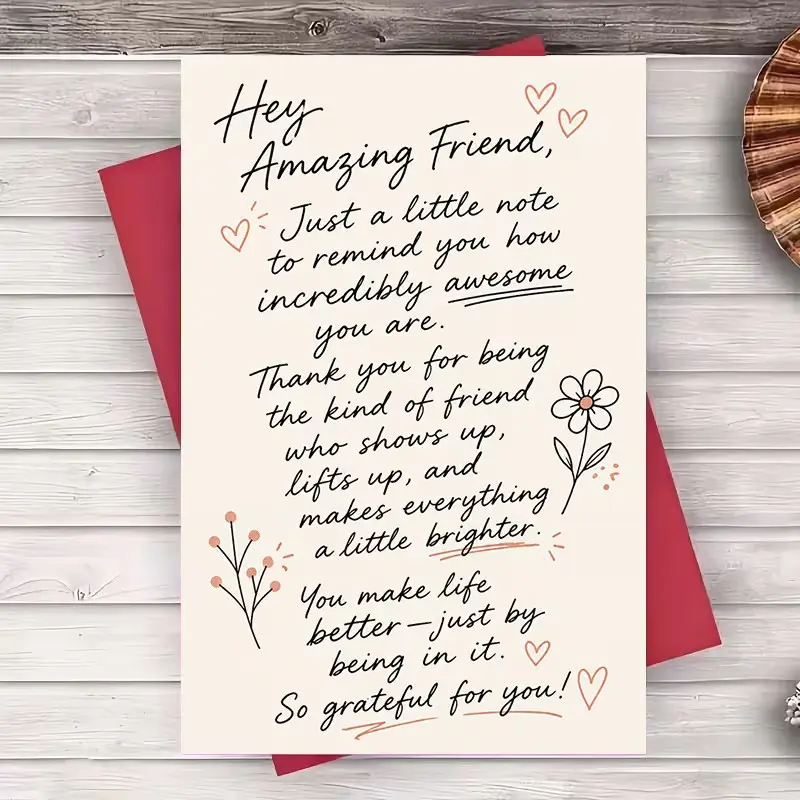 Hey
Amazing Friend,
Just a little note
to remind you how
incredibly awesome
you are.
Thank you for being
the kind of friend
who shows up,
lifts up, and
makes everything
a little brighter.
You make life
better—just by
being in it.
So grateful for you!